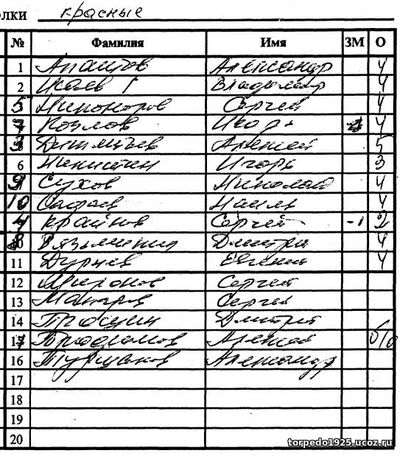 олки красные
№ Фамилия Имя ЗМ О
1 Александр 4
2 Исаев Владимир 4
5 Никоноров Сергей 4
7 Козлов Игорь 4
3 Алексей 5
6 Никитин Игорь 3
9 Сухов Николай 4
10 Сафаев Наиль 4
4 Крайнов Сергей -1 2
8 Дмитрий 4
11 Дурнев Евгений 4
12 Миронов Сергей
13 Макаров Сергей
14 Трошин Дмитрий
17 Алексей б/о
16 Александр
17
18
19
20
torpedo1925.ucoz.ru